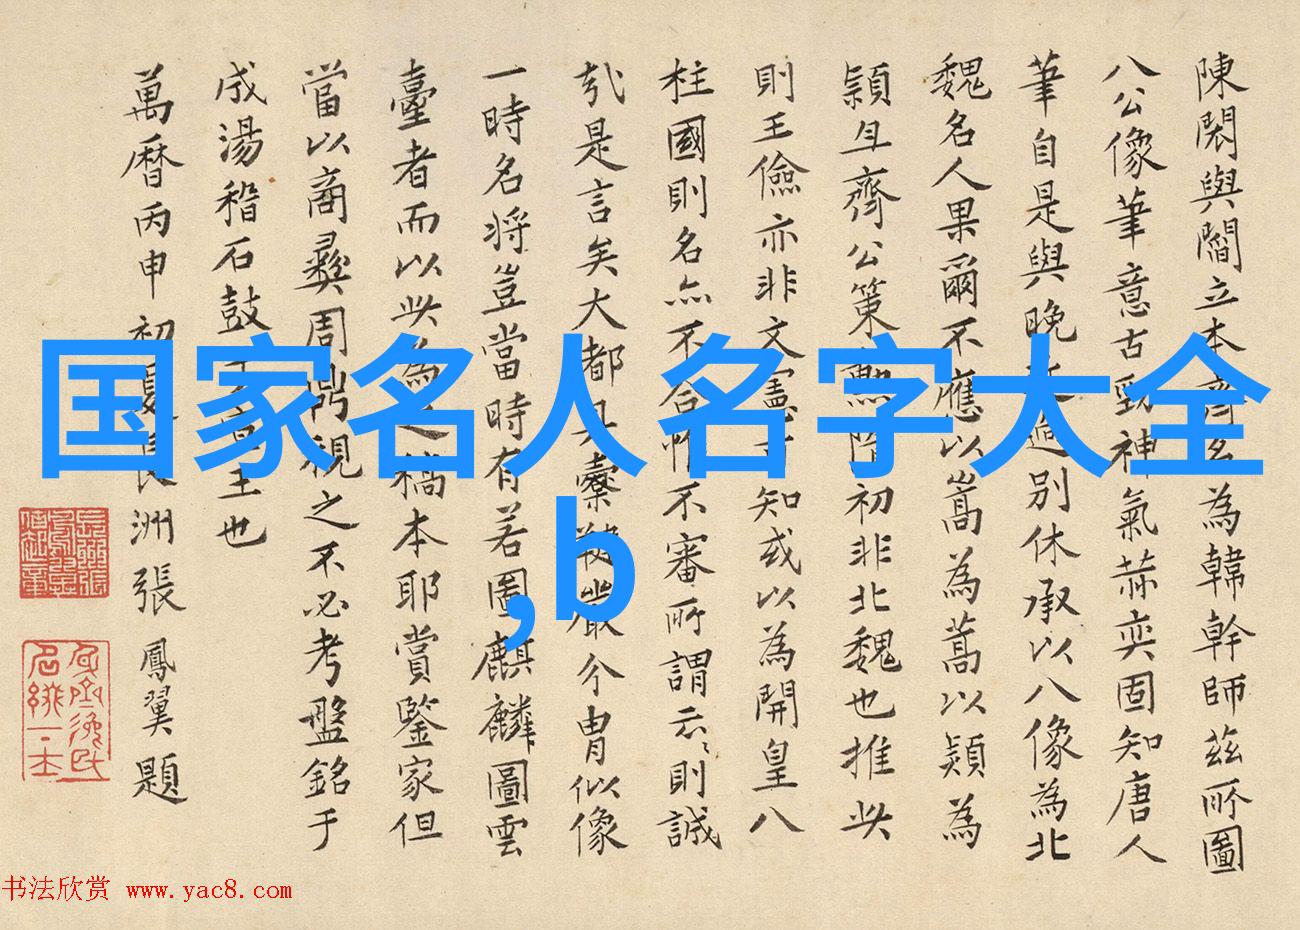 陳閎與閻立本齊名為韓幹師茲所圖
八公像筆意古勁神氣赫奕固知唐人
筆自是與晚近逈別休承以八像為北
魏名人果爾不應以嵩為蒿以頴為
頴且齊公策熙除初非北魏也推此
則王儉亦非文憲可知或以為開皇八
柱國則名亦不合惟不審所謂云云則誠
哉是言矣大都具櫜鞬嚴介冑似像
一時名将豈當時有若圖麒麟圖雲
臺者而以此為之稿本耶賞鑒家但
當以商彝周鼎視之不必考盤銘于
成湯稽石鼓于宣王也
萬曆丙申初夏長洲張鳳翼題
国家名人名字大全
,b
书法欣赏 www.yac8.com